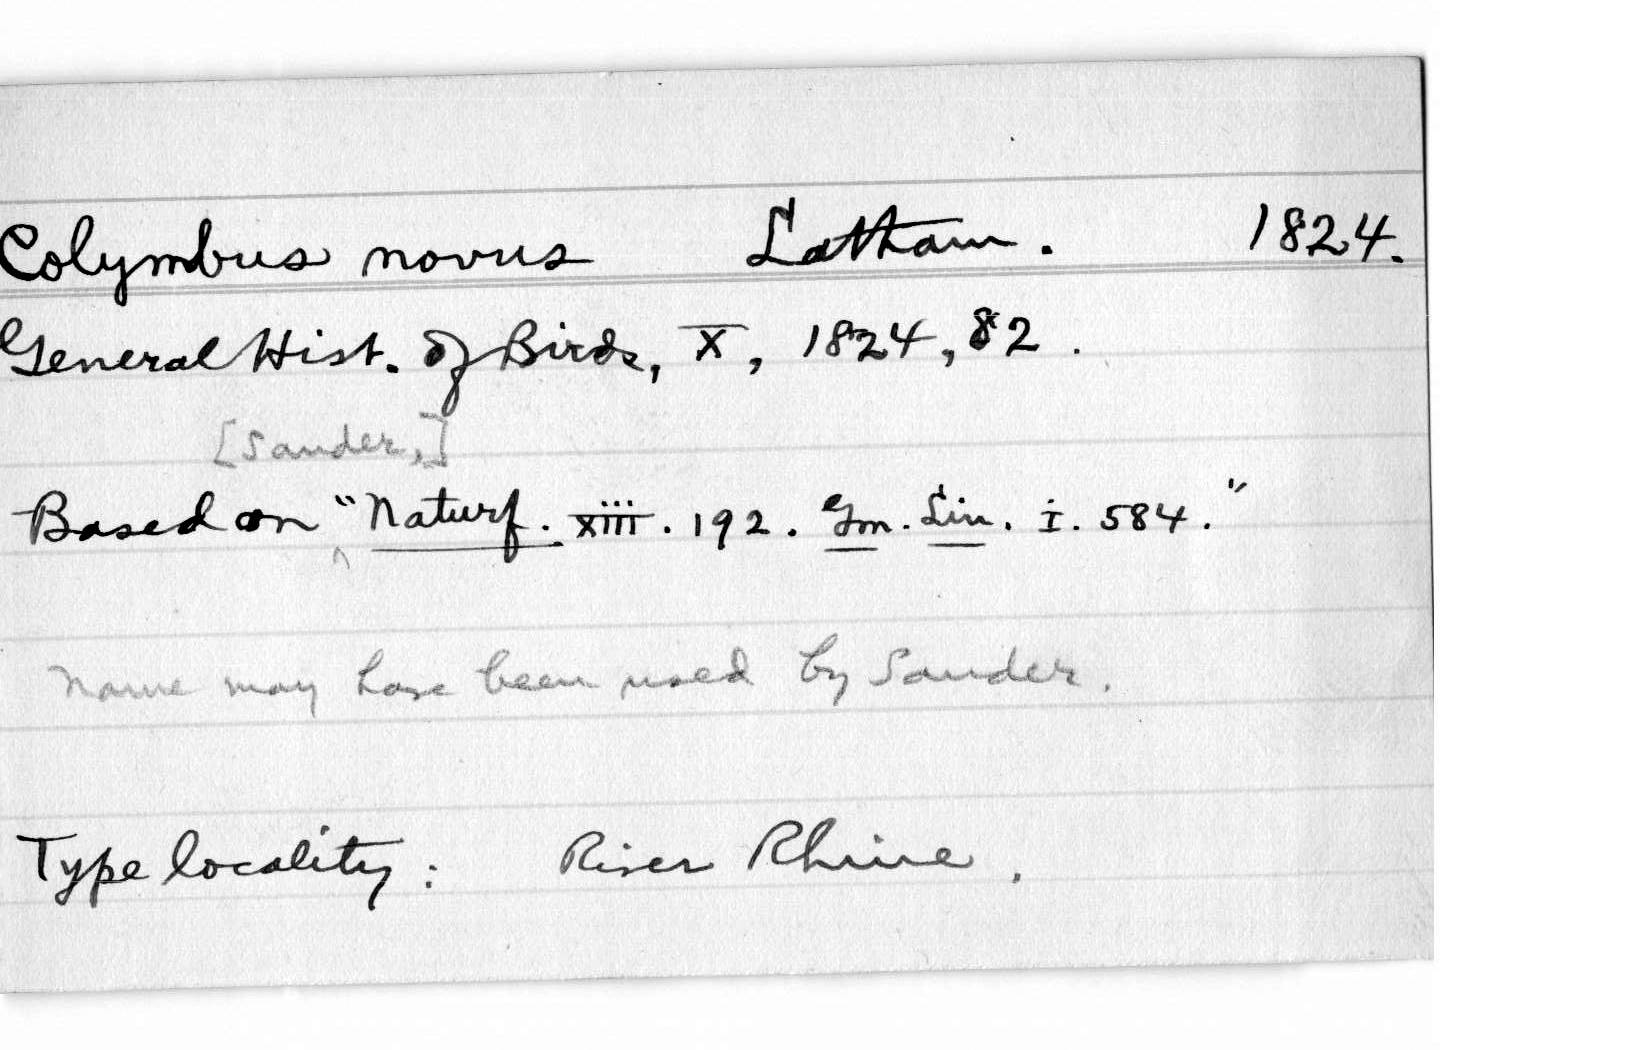 Colymbus novus Latham. 1824.
General Hist. of Birds, X, 1824, 82.
[Sander,]
Based on ‸ "Naturf. xiii. 192. Gm. Lin. i. 584."
Name may have been used by Sander.
Type locality: River Rhine.